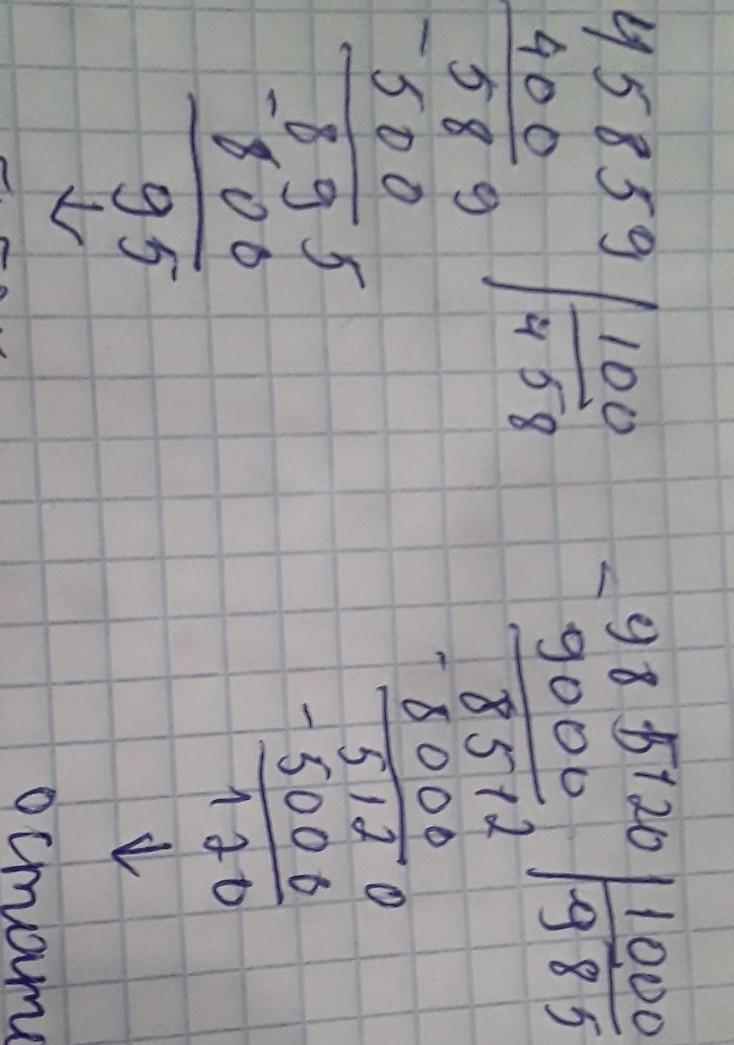 45859 | 100
400 458
- 589
500
- 895
800
95
↓
- 985120 | 1000
9000 985
8512
- 8000
5120
- 5000
120
↓